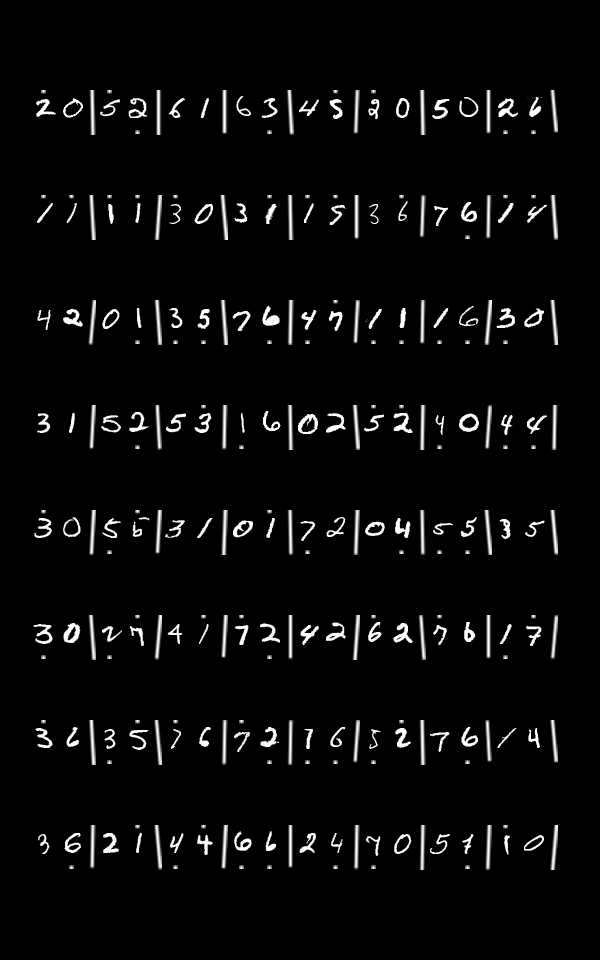 2 0 | 5 2 | 6 1 | 6 3 | 4 5 | 2 0 | 5 0 | 2 6 |
1 1 | 1 1 | 3 0 | 3 1 | 1 5 | 3 6 | 7 6 | 1 4 |
4 2 | 0 1 | 3 5 | 7 6 | 4 7 | 1 1 | 1 6 | 3 0 |
3 1 | 5 2 | 5 3 | 1 6 | 0 2 | 5 2 | 4 0 | 4 4 |
3 0 | 5 5 | 3 1 | 0 1 | 7 2 | 0 4 | 5 5 | 3 5 |
3 0 | 2 7 | 4 1 | 7 2 | 4 2 | 6 2 | 7 6 | 1 7 |
3 6 | 3 5 | 7 6 | 7 2 | 1 6 | 5 2 | 7 6 | 1 4 |
3 6 | 2 1 | 4 4 | 6 6 | 2 4 | 7 0 | 5 7 | 1 0 |